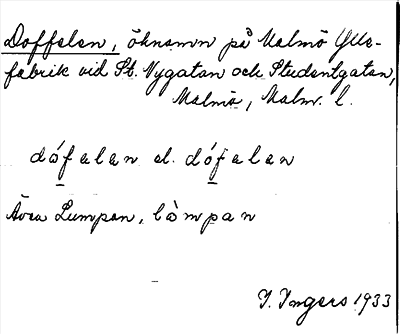 Doffelen, öknamn på Malmö Ylle-
fabrik vid St. Nygatan och Studentgatan,
Malmö, Malm. l.
dófalan el. dófalan
Även Lumpen, lòmpan
I. Ingers 1933